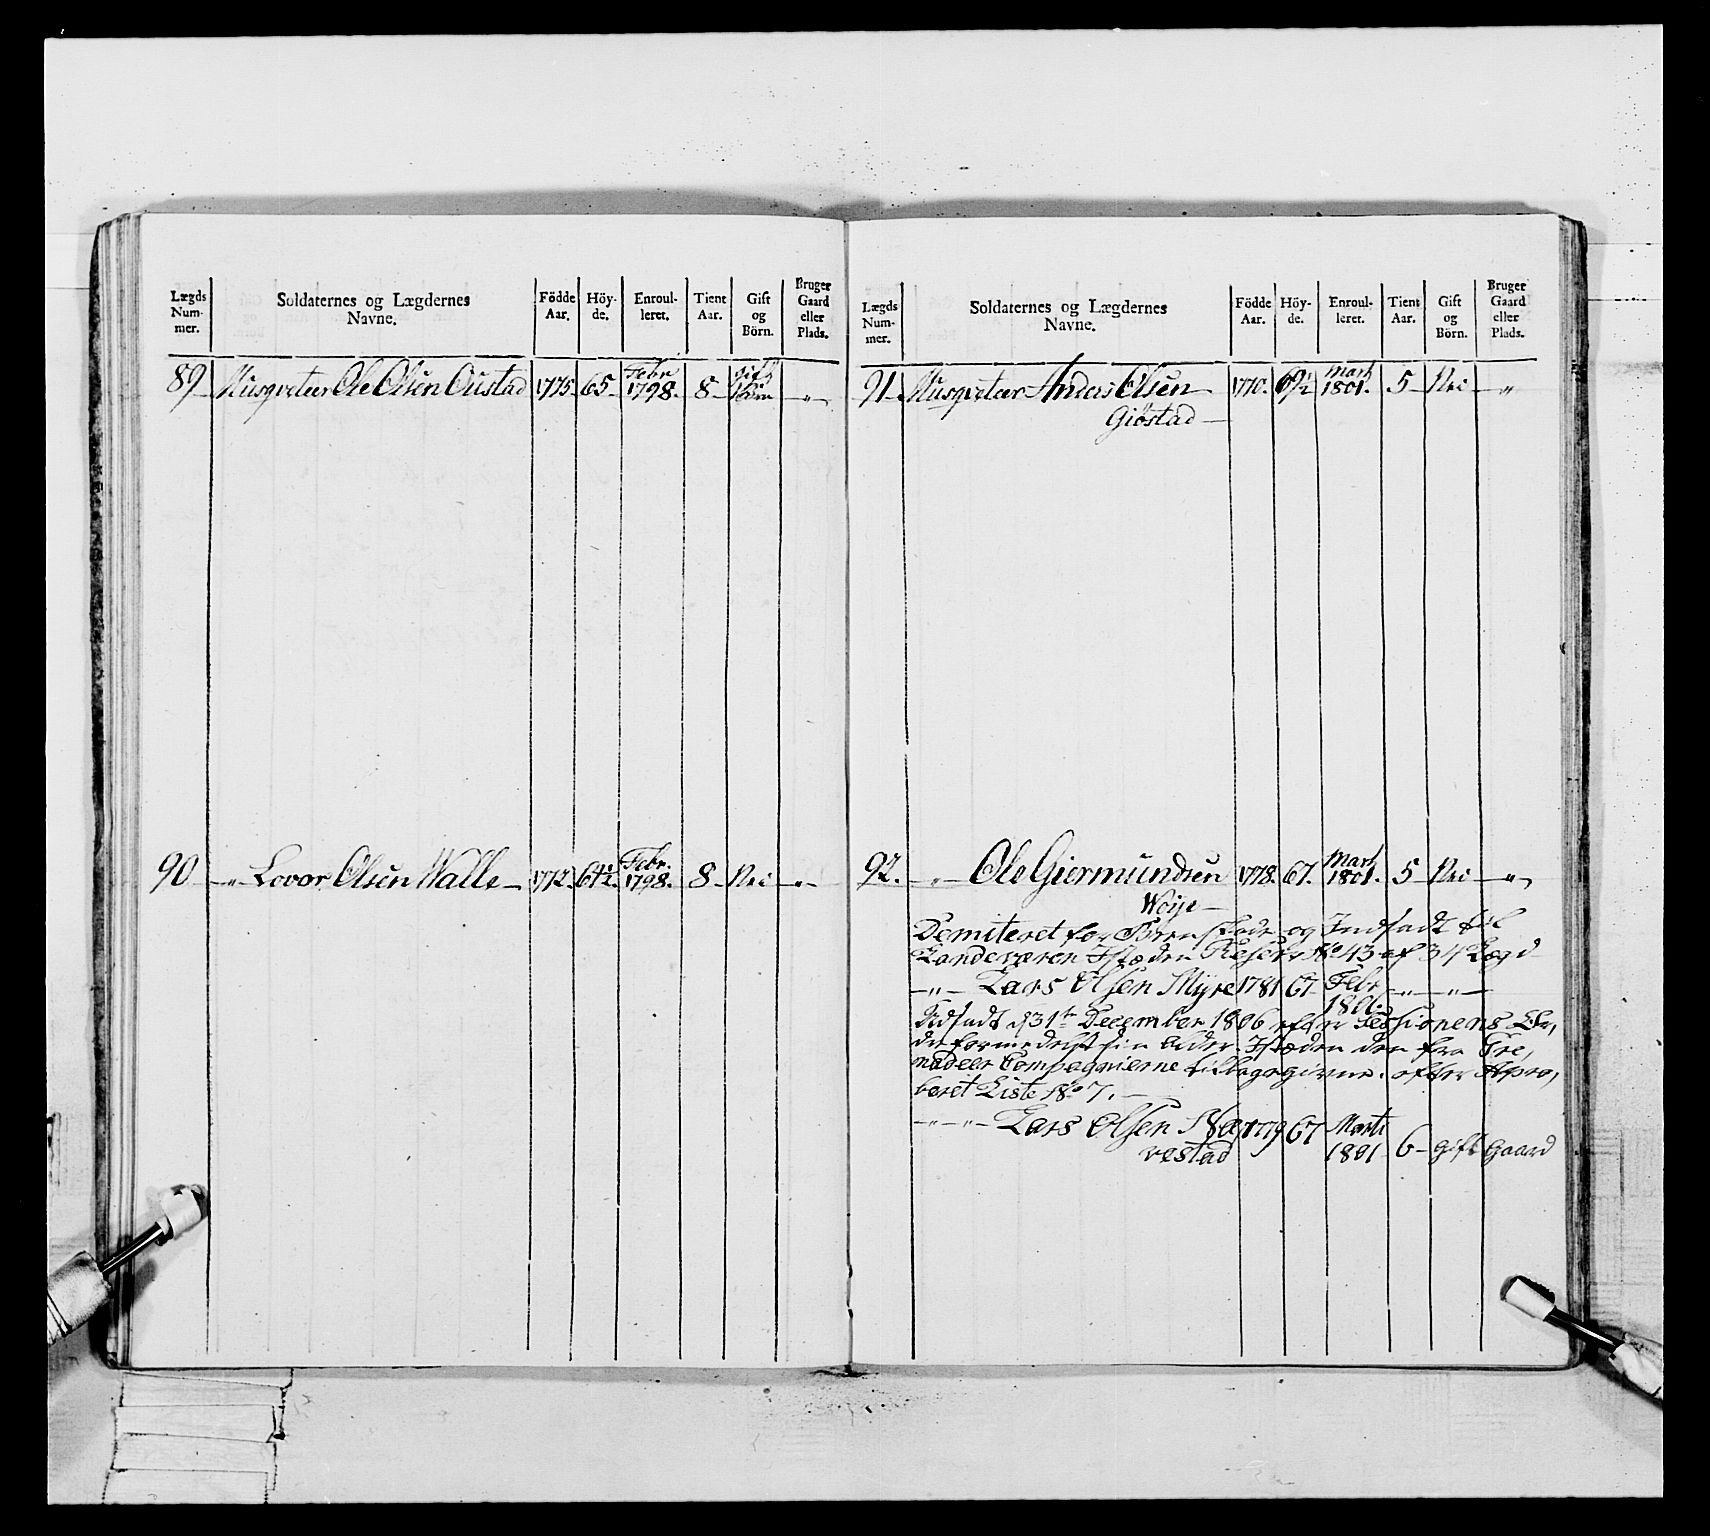 Lægds Num- mer. Soldaternes og Lægdernes Navne. Födde Aar. Höy- de. Enroul- leret. Tient Aar. Gift og Börn. Bruger Gaard eller Plads.
89 Musqveteer Ole Olsen Oustad 1775 65 Febr 1798. 8 Gift
90 „ Lovar Olsen Walle 1772. 64½ Febr. 1798. 8 Nei „
Lægds Num- mer. Soldaternes og Lægdernes Navne. Födde Aar. Höy- de. Enroul- leret. Tient Aar. Gift og Börn. Bruger Gaard eller Plads.
91 Musqveteer Anders Olsen 1770. 69½ Mart 1801. 5 Nei „
Giöstad
92. „ Ole Giermundsen 1778. 67. Mart 1801. 5 Nei „
Weije
Demiteret for Brenskade og Indsadt til
Landeværen Isteden Reserv No 43 af 34 Lægd
„ Lars Olsen Myre 1781 67 Febr 1806. „ „
Udsadt d 31te December 1806 efter Sessionens Or,
der formedelst sin Alder. Isteden den fra Gre,
nadeer Compagnierne tilbagegivne. efter Apro,
beret Liste No 7.
„ „ Lars Olsen 1779 67 Marti 1801 6 gift Gaard
vestad